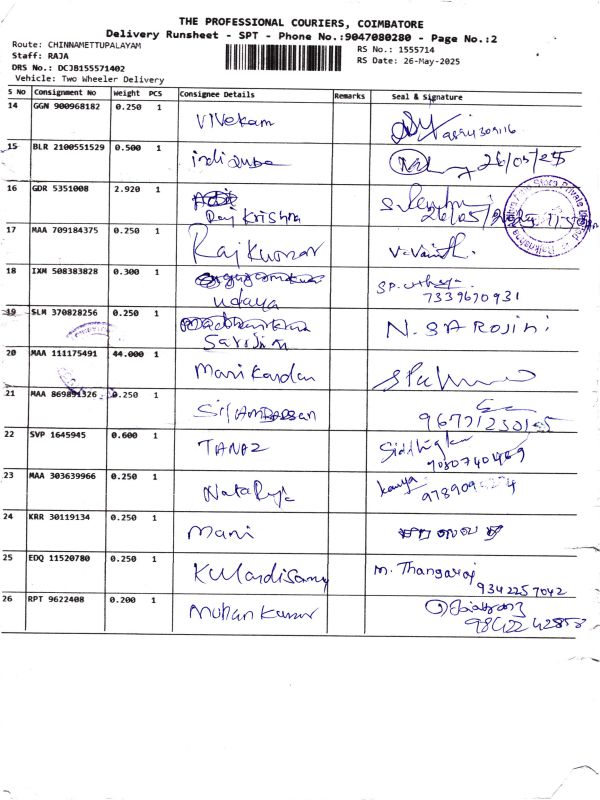 THE PROFESSIONAL COURIERS, COIMBATORE
Delivery Runsheet - SPT - Phone No.:9047080280 - Page No.:2
Route: CHINNAMETTUPALAYAM
RS No.: 1555714
Staff: RAJA
RS Date: 26-May-2025
DRS No.: DCJB155571402
Vehicle: Two Wheeler Delivery
S No Consignment No Weight PCS Consignee Details Remarks Seal & Signature
14 GGN 900968182 0.250 1 Vivekam
15 BLR 2100551529 0.500 1 26/05/25
16 GDR 5351008 2.920 1 Raj Krishna
17 MAA 709184375 0.250 1 Rajkumar
18 IXM 508383828 0.300 1 udaya 7339670931
19 SLM 370828256 0.250 1 Sarojini N. SAROJINI
20 MAA 111175491 44.000 1 Manikandan
21 MAA 869891326 0.250 1
22 SVP 1645945 0.600 1 TANAZ
23 MAA 303639966 0.250 1 NataRaja
24 KRR 30119134 0.250 1 Mani
25 EDQ 11520780 0.250 1 Kulandisamy m. Thangaraj
9342257042
26 RPT 9622408 0.200 1 Mohan Kumar